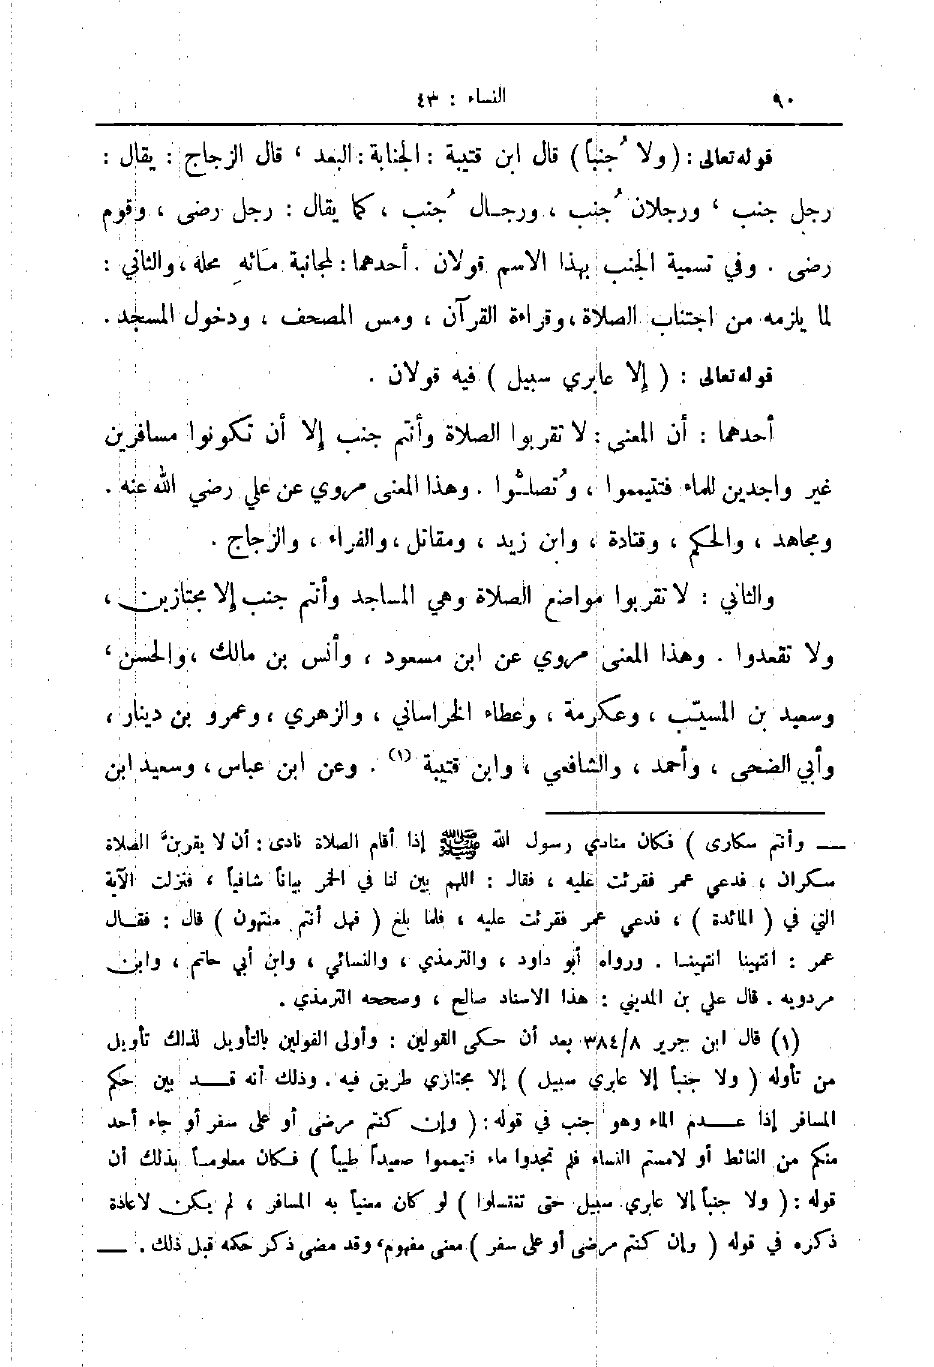 ٩٠ النساء : ٤٣
قوله تعالى : ( ولا جُنباً ) قال ابن قتيبة : الجنابة : البعد ، قال الزجاج : يقال :
رجل جنب ، ورجلان جُنب ، ورجال جُنب ، كما يقال : رجل رضى ، وقوم
رضى . وفي تسمية الجنب بهذا الاسم قولان . أحدهما : لمجانبة مَائهِ محله ، والثاني :
لما يلزمه من اجتناب الصلاة ، وقراءة القرآن ، ومس المصحف ، ودخول المسجد .
قوله تعالى : ( إلا عابري سبيل ) فيه قولان .
أحدهما : أن المعنى : لا تقربوا الصلاة وأنتم جنب إلا أن تكونوا مسافرين
غير واجدين للماء فتتيمموا ، وتُصلُّوا . وهذا المعنى مروي عن علي رضي الله عنه .
ومجاهد ، والحكم ، وقتادة ، وابن زيد ، ومقاتل ، والفراء ، والزجاج .
والثاني : لا تقربوا مواضع الصلاة وهي المساجد وأنتم جنب إلا مجتازين ،
ولا تقعدوا . وهذا المعنى مروي عن ابن مسعود ، وأنس بن مالك ، والحسن ،
وسعيد بن المسيّب ، وعكرمة ، وعطاء الخراساني ، والزهري ، وعمرو بن دينار ،
وأبي الضحى ، وأحمد ، والشافعي ، وابن قتيبة (١) . وعن ابن عباس ، وسعيد ابن
— وأنتم سكارى ) فكان منادي رسول الله ﷺ إذا أقام الصلاة نادى : أن لا يقربنَّ الصلاة
سكران ، فدعي عمر فقرئت عليه ، فقال : اللهم بين لنا في الخمر بياناً شافياً ، فنزلت الآية
التي في ( المائدة ) ، فدعي عمر فقرئت عليه ، فلما بلغ ( فهل أنتم منتهون ) قال : فقال
عمر : انتهينا انتهينا . ورواه أبو داود ، والترمذي ، والنسائي ، وابن أبي حاتم ، وابن
مردويه . قال علي بن المديني : هذا الاسناد صالح ، وصححه الترمذي .
(١) قال ابن جرير ٣٨٤/٨ بعد أن حكى القولين : وأولى القولين بالتأويل لذلك تأويل
من تأوله ( ولا جنباً إلا عابري سبيل ) إلا مجتازي طريق فيه . وذلك أنه قد بين حكم
المسافر إذا عدم الماء وهو جنب في قوله : ( وإن كنتم مرضى أو على سفر أو جاء أحد
منكم من الغائط أو لامستم النساء فلم تجدوا ماء فتيمموا صعيداً طيباً ) فكان معلوماً بذلك أن
قوله : ( ولا جنباً إلا عابري سبيل حتى تغتسلوا ) لو كان معنياً به المسافر ، لم يكن لاعادة
ذكره في قوله ( وإن كنتم مرضى أو على سفر ) معنى مفهوم ، وقد مضى ذكر حكمه قبل ذلك . —